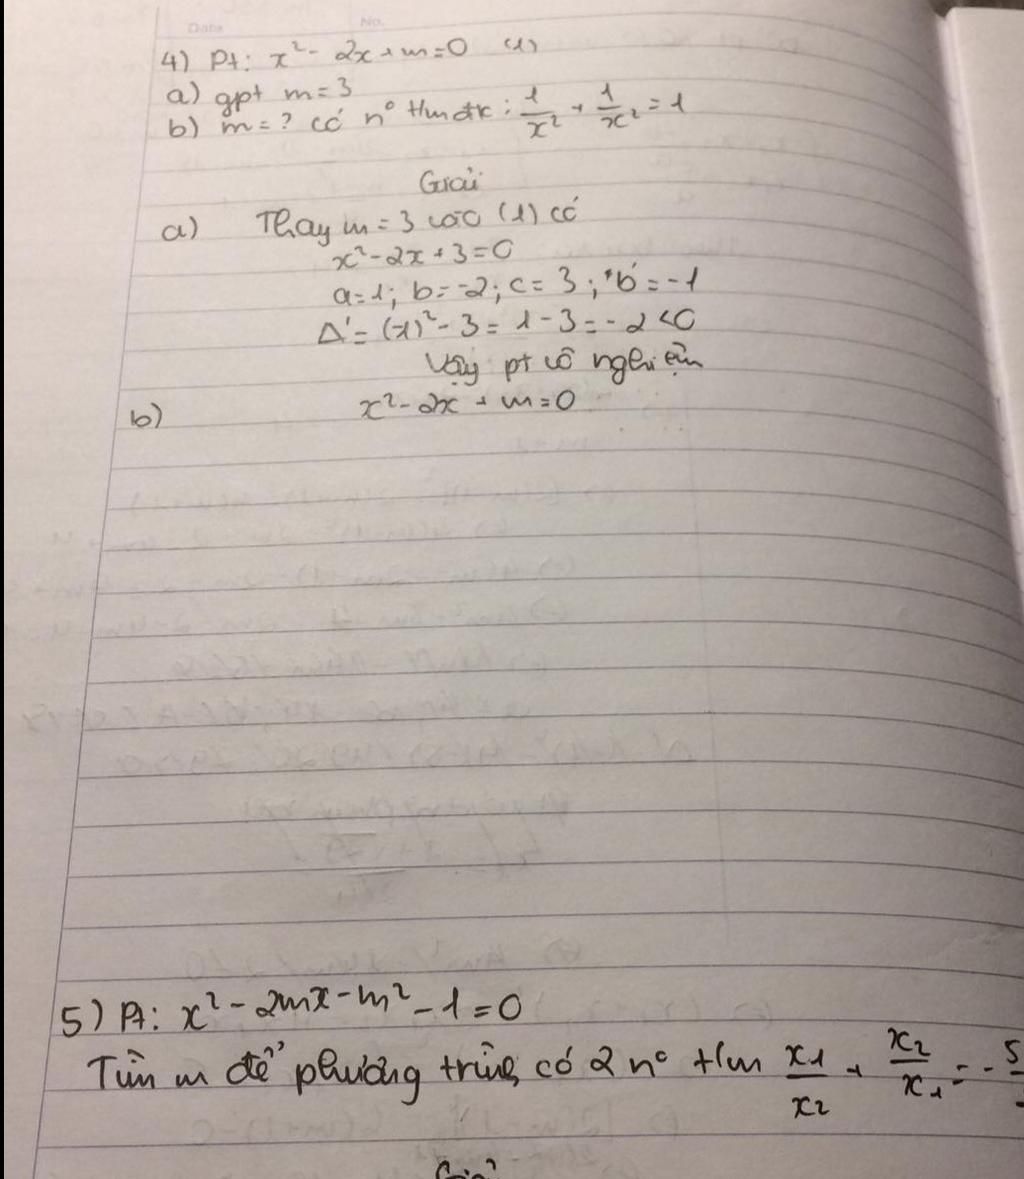 Date No.
4) Pt: x² - 2x + m = 0 (1)
a) gpt m = 3
b) m = ? có n° t/m đk: 1/x² + 1/x² = 1
Giải
a) Thay m = 3 vào (1) có
x² - 2x + 3 = 0
a = 1; b = -2; c = 3; b' = -1
Δ' = (-1)² - 3 = 1 - 3 = -2 < 0
Vậy pt vô nghiệm
b) x² - 2x + m = 0
5) Pt: x² - 2mx - m² - 1 = 0
Tìm m để phương trình có 2 n° t/m x₁/x₂ + x₂/x₁ = - 5